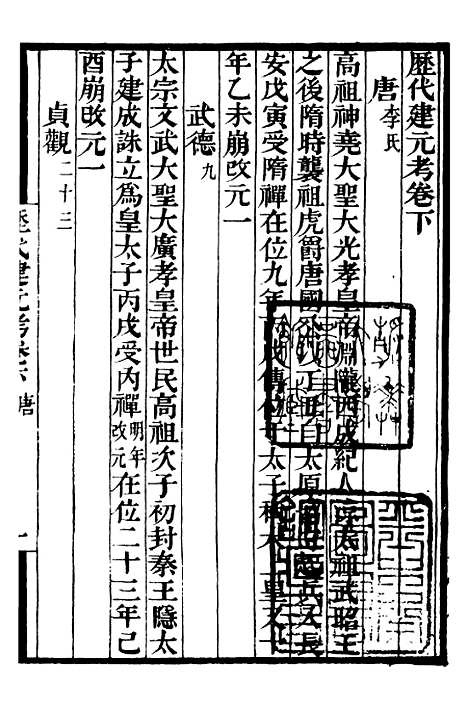 歷代建元考卷下
唐李氏
高祖神堯大聖大光孝皇帝淵隴西成紀人 太祖武昭王
之後隋時襲祖虎爵唐國公 丁丑自太原 兵入長
安戊寅受隋禪在位九年丙戌傳位于太子稱太上皇又十
年乙未崩改元一
武德九
太宗文武大聖大廣孝皇帝世民高祖次子初封秦王隱太
子建成誅立爲皇太子丙戌受內禪明年改元在位二十三年己
酉崩改元一
貞觀二十三
歷代建元考卷 唐 一